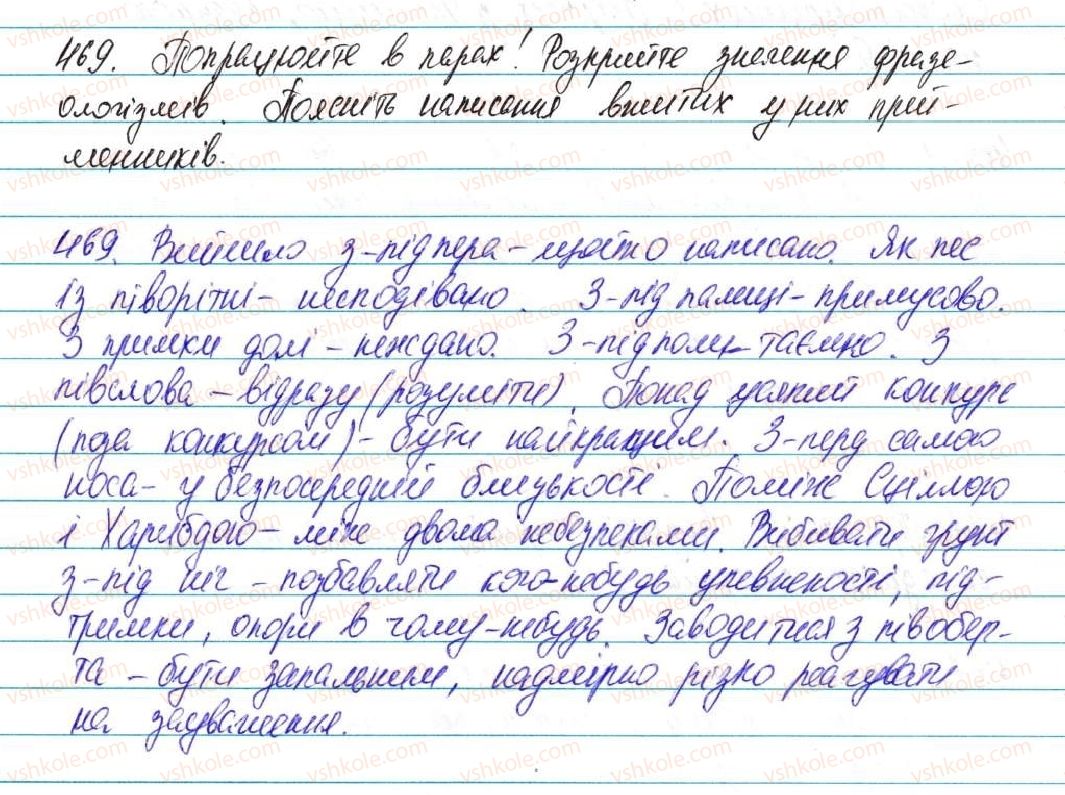 469. Попрацюйте в парах! Розкрийте значення фразе-
ологізмів. Поясніть написання вжитих у них прий-
менників.
469. Вийшло з-під пера - щойно написано. Як пес
із піворітні - несподівано. З-під палиці - примусово.
З примхи долі - неждано. З-під поли - таємно. З
півслова - відразу (розуміти). Понад усякий конкурс
(поза конкурсом) - бути найкращим. З-перед самого
носа - у безпосередній близькості. Поміж Сціллою
і Харибдою - між двома небезпеками. Вибивати грунт
з-під ніг - позбавляти кого-небудь упевненості, під-
тримки, опори в чому-небудь. Заводитися з півобер-
та - бути запальним, надмірно різко реагувати
на зауваження.